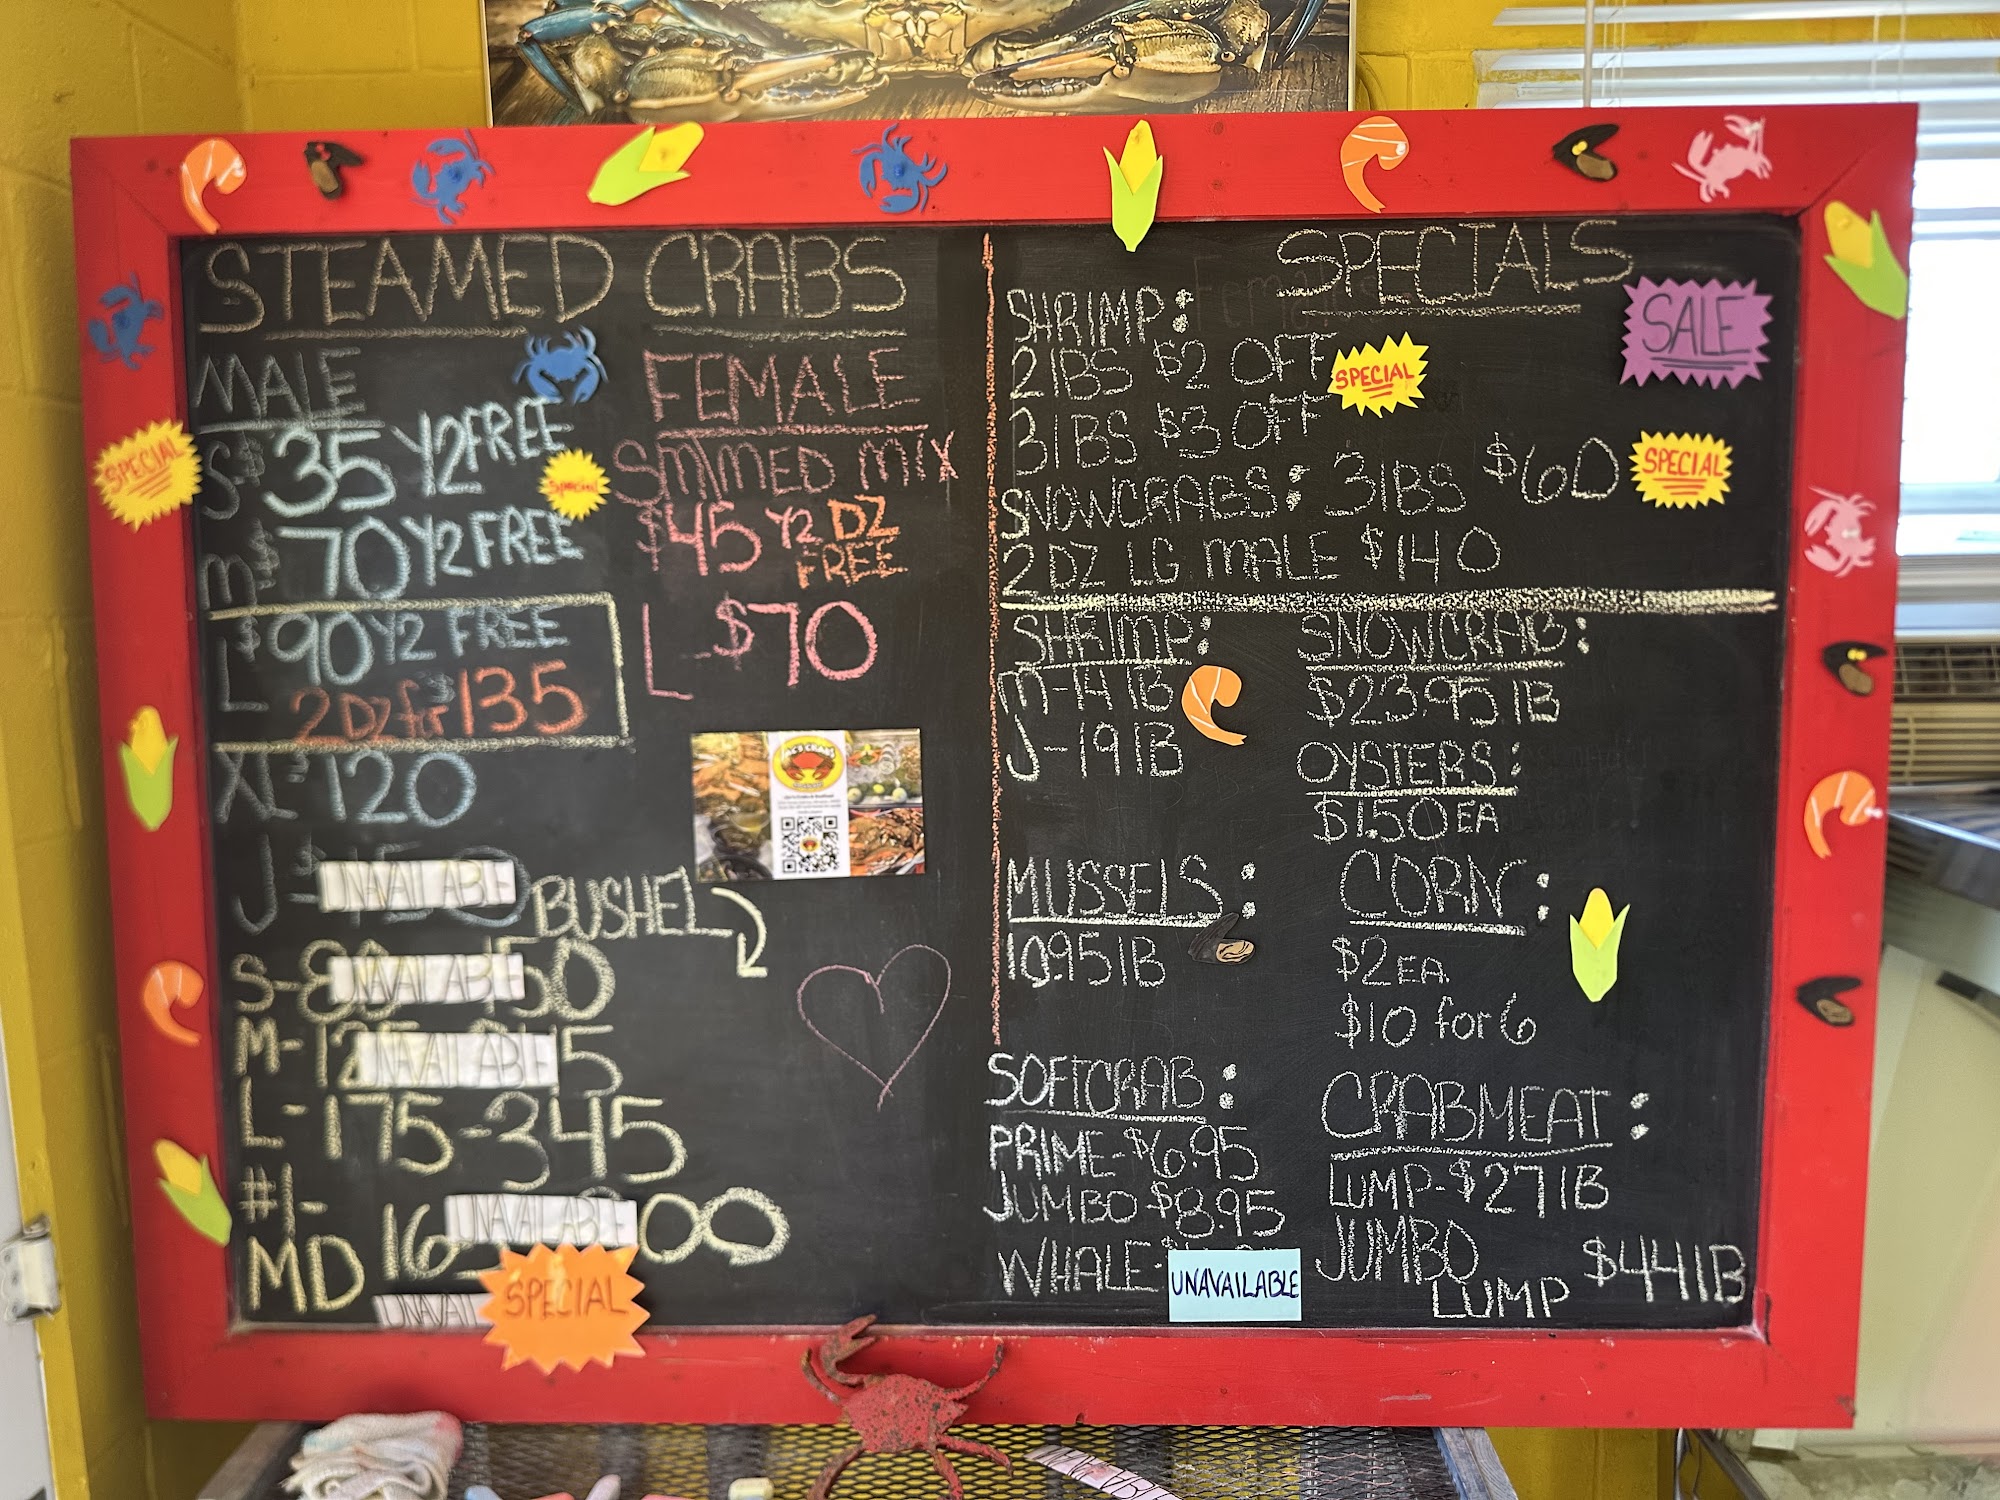 STEAMED CRABS
MALE
S $35 Y2 FREE
M $70 Y2 FREE
L $90 Y2 FREE
2 DZ for $135
XL $120
J $
UNAVAILABLE
BUSHEL
S-80 150
UNAVAILABLE
M-12 15
UNAVAILABLE
L-175-345
#1-
MD 16 00
UNAVAILABLE
UNAVAI
SPECIAL
SPECIAL
Special
FEMALE
SM MED MIX
$45 Y2 DZ
FREE
L-$70
SPECIALS
SALE
SHRIMP:
2 lBS $2 OFF
SPECIAL
3 lBS $3 OFF
SNOWCRABS: 3 lBS $60
SPECIAL
2 DZ LG MALE $140
SHRIMP:
M-14 lB
J-19 lB
SNOWCRAB:
$23.95 lB
OYSTERS:
$1.50 EA
MUSSELS:
10.95 lB
CORN:
$2 EA.
$10 for 6
SOFTCRAB:
PRIME-$6.95
JUMBO $8.95
WHALE-
UNAVAILABLE
CRABMEAT:
LUMP-$27 lB
JUMBO
LUMP $44 lB